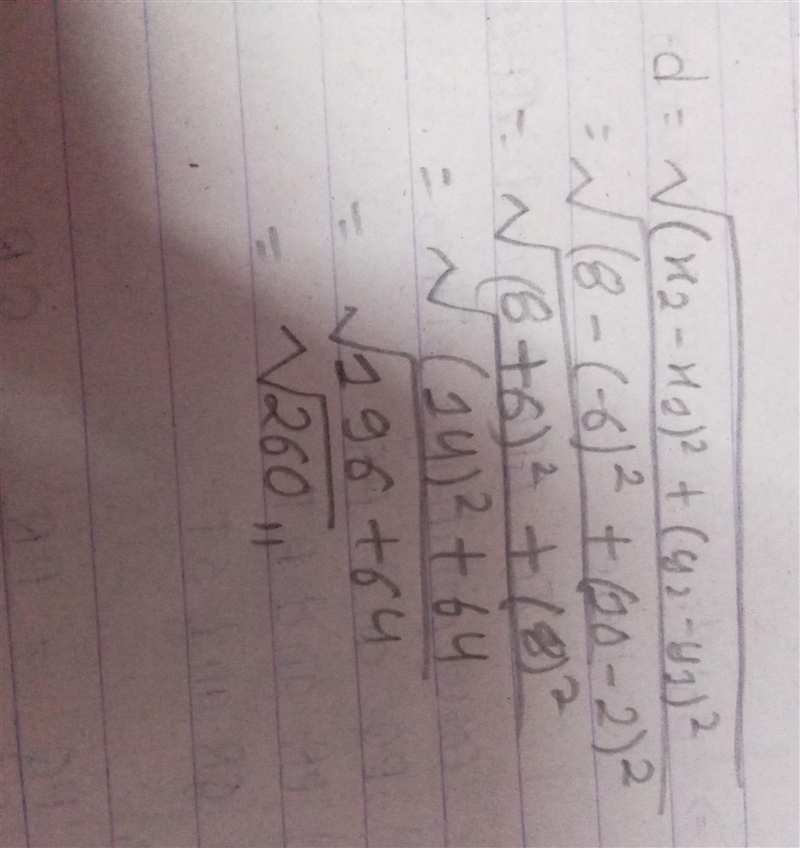 d = √(x₂ - x₁)² + (y₂ - y₁)²
= √(8 - (-6)² + (10 - 2)²
= √(8 + 6)² + (8)²
= √(14)² + 64
= √196 + 64
= √260 ,,